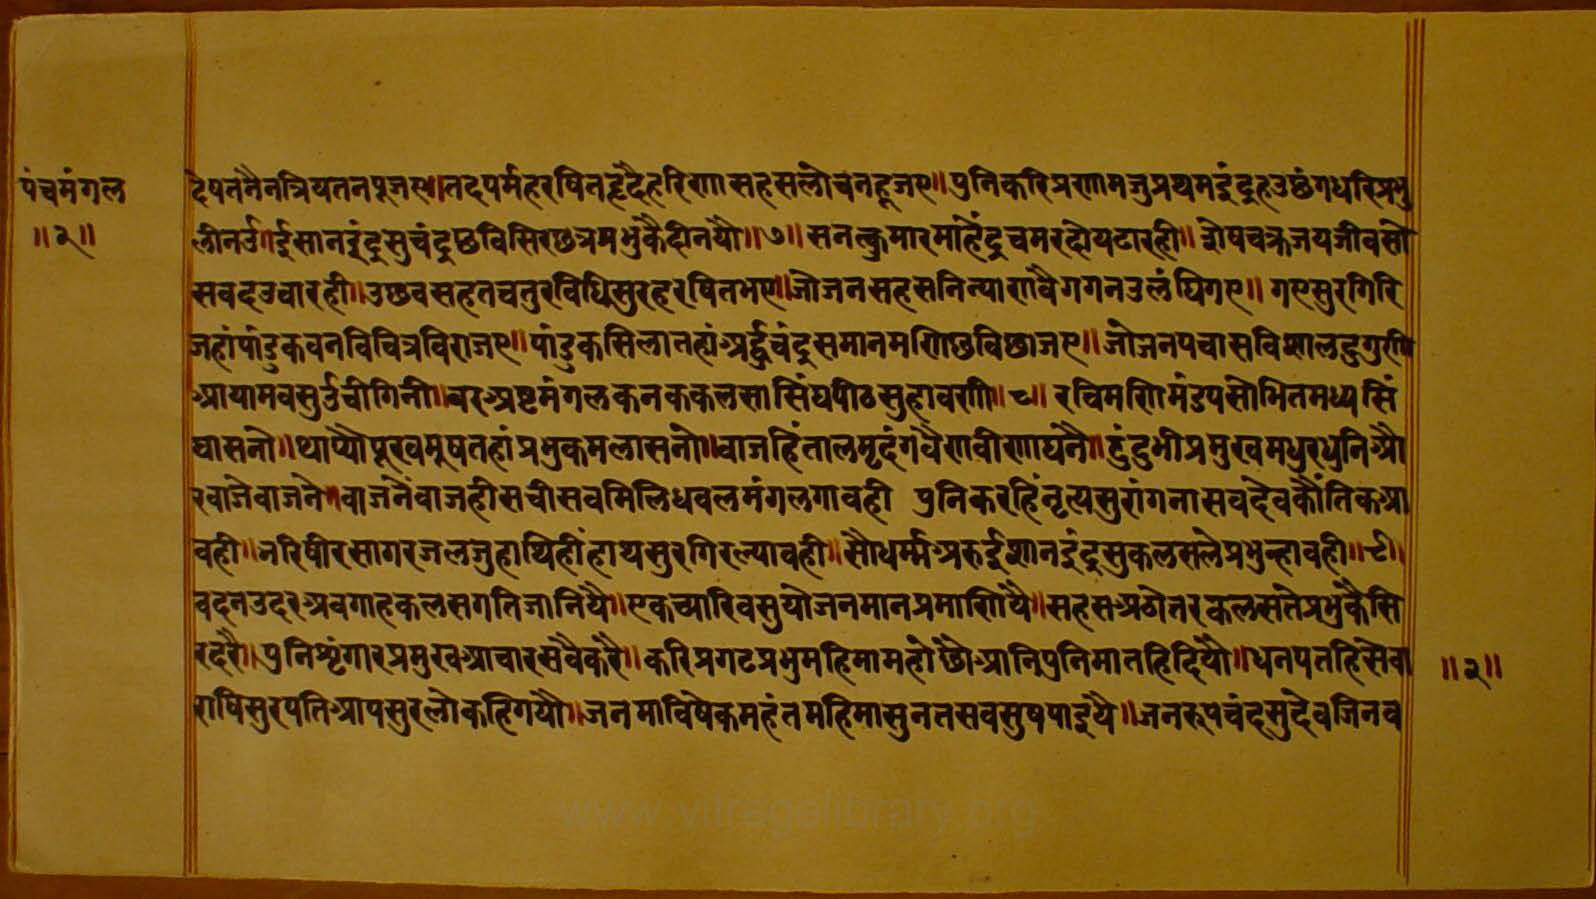 पंचमंगल
॥२॥
देषतनैनत्रिपतनपूजए॥तदपर्महरषितहृदैहरिणासहसलोचनहूजए॥पुनिकरिप्रणामजुप्रथमइंद्रहउछंगधरिप्रभु
लीनउ॥ईसानइंद्रसुचंद्रछविसिरछत्रप्रभुकैदीनयौ॥७॥सनत्कुमारमाहेंद्रचमरदोयढारही॥शेषचक्रजयजीवसो
सवदउचारही॥उछवसहतचतुरविधिसुरहरषितभए॥जोजनसहसनिन्याणवैगगनउलंघिगए॥गएसुरगिरि
जहांपांडुकवनविचित्रविराजए॥पांडुकसिलातहांअर्द्धचंद्रसमानमणिछविछाजए॥जोजनपचासविशालदुगुणी
आयामवसुउंचीगिनी॥वरअष्टमंगलकनककलसासिंघपीठसुहावणी॥८॥रचिमणिमंडपसोभितमध्यसिं
घासनो॥थाप्यौपूरवमुषतहांप्रभुकमलासनो॥वाजहिंतालमृदंगवैणवीणाघनै॥दुंदुभीप्रमुखमधुरधुनिऔ
रवाजेवाजने॥वाजनैंवाजहीसचीसवमिलिधवलमंगलगावही पुनिकरहिंनृत्यसुरांगनासवदेवकौंतिकआ
वही॥भरिषीरसागरजलजुहाथिहींहाथसुरगिरल्यावही॥सौधर्म्मअरुईशानइंद्रसुकलसलेप्रभुन्हावही॥९॥
वदनउदरअवगाहकलसगतिजानियै॥एकच्यारिवसुयोजनमानप्रमाणियै॥सहसअठोतरकलसतेप्रभुकैसि
रढरै॥पुनिशृंगारप्रमुखआचारसवैकरै॥करिप्रगटप्रभुमहिमामहोछौआनिपुनिमातहिदियौ॥धनपतहिसेवा
राषिसुरपतिआपसुरलोकहिगयौ॥जनमाविषेकमहंतमहिमासुनतसवसुषपाइयै॥जनरूपचंदसुदेवजिनव
॥२॥
www.vitragalibrary.org